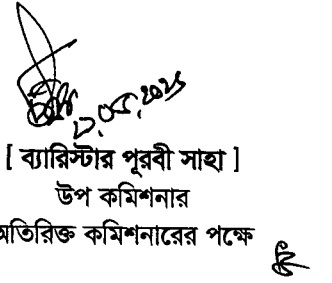 [ ব্যারিস্টার পূরবী সাহা ]
উপ কমিশনার
অতিরিক্ত কমিশনারের পক্ষে